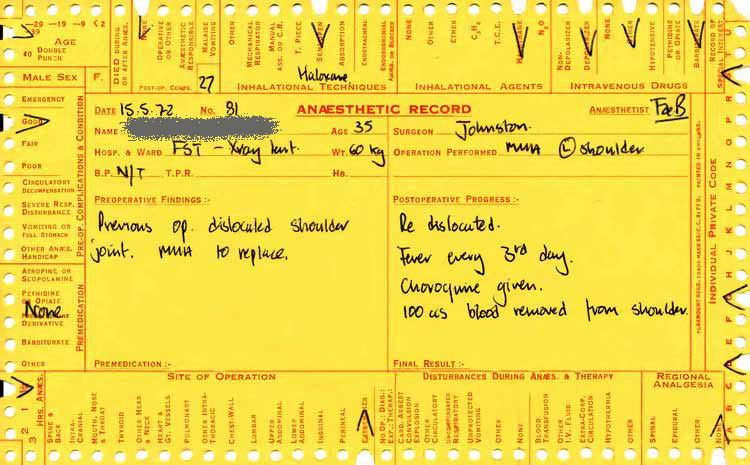 -29 -19 -9 <2
39
AGE
40 DOUBLE PUNCH
DIED DURING OR AFTER ANÆS.
NONE
OPERATIVE OR OTHER
ANÆSTHETIC RESPONSIBLE
MALAISE VOMITING
OTHER
MECHANICAL RESPIRATOR
MANUAL ASS. OR C.R.
T. PIECE
ABSORPTION
ENDOTRACHEAL
NONE
OTHER
OTHER
C₃H₆
T.C.E.
N₂O
NONE
NON-DEPOLARIZER
DEPOLARIZER
OTHER
HYPOTENSIVE
PETHIDINE OR OPIATE
BARBITURATE
RECORD OF SPECIAL INTEREST
MALE SEX F. POST-OP. COMPS. 27
Haloxane
INHALATIONAL TECHNIQUES INHALATIONAL AGENTS INTRAVENOUS DRUGS
EMERGENCY
GOOD
FAIR
POOR
CIRCULATORY DECOMPENSATION
SEVERE RESP. DISTURBANCE
VOMITING OR FULL STOMACH
OTHER ANÆS. HANDICAP
PRE-OP. COMPLICATIONS & CONDITION
ATROPINE OR SCOPOLAMINE
PETHIDINE OR OPIATE
None
DERIVATIVE
BARBITURATE
OTHER
PREMEDICATION
DATE 15.5.72 No. 81 ANÆSTHETIC RECORD ANÆSTHETIST FaeB
NAME AGE 35 SURGEON Johnston.
HOSP. & WARD FST - Xray tent. WT. 60 kg OPERATION PERFORMED MUA (L) shoulder
B.P. N/T T.P.R. HB.
PREOPERATIVE FINDINGS :-
Previous op. dislocated shoulder
joint. MUA to replace.
PREMEDICATION :-
POSTOPERATIVE PROGRESS :-
Re dislocated.
Fever every 3rd day.
Choroquine given.
100 ccs blood removed from shoulder.
FINAL RESULT :-
PRINTED IN ENGLAND.
INDIVIDUAL PRIVATE CODE
SITE OF OPERATION DISTURBANCES DURING ANÆS. & THERAPY REGIONAL ANALGESIA
3 2 1
HRS. ANÆS.
SPINE & BACK
INTRA-CRANIAL
MOUTH, NOSE & THROAT
THYROID
OTHER HEAD & NECK
HEART & GT. VESSELS
PULMONARY
OTHER INTRA-THORACIC
CHEST-WALL
LUMBAR
UPPER ABDOMINAL
LOWER ABDOMINAL
INGUINAL
PERINEAL
EXTREMITIES
NO OP.: DIAG.: EXP.: THERAP.:
CARD. ARREST CONVULSION EXPLOSION
OTHER CIRCULATORY
RESPIRATORY
UNPROTECTED VOMITING
OTHER
NONE
BLOOD TRANSFUSION
OTHER I.V. FLUID
EXTRA-CORP. CIRCULATION
HYPOTHERMIA
OTHER
SPINAL
EPIDURAL
OTHER
NONE